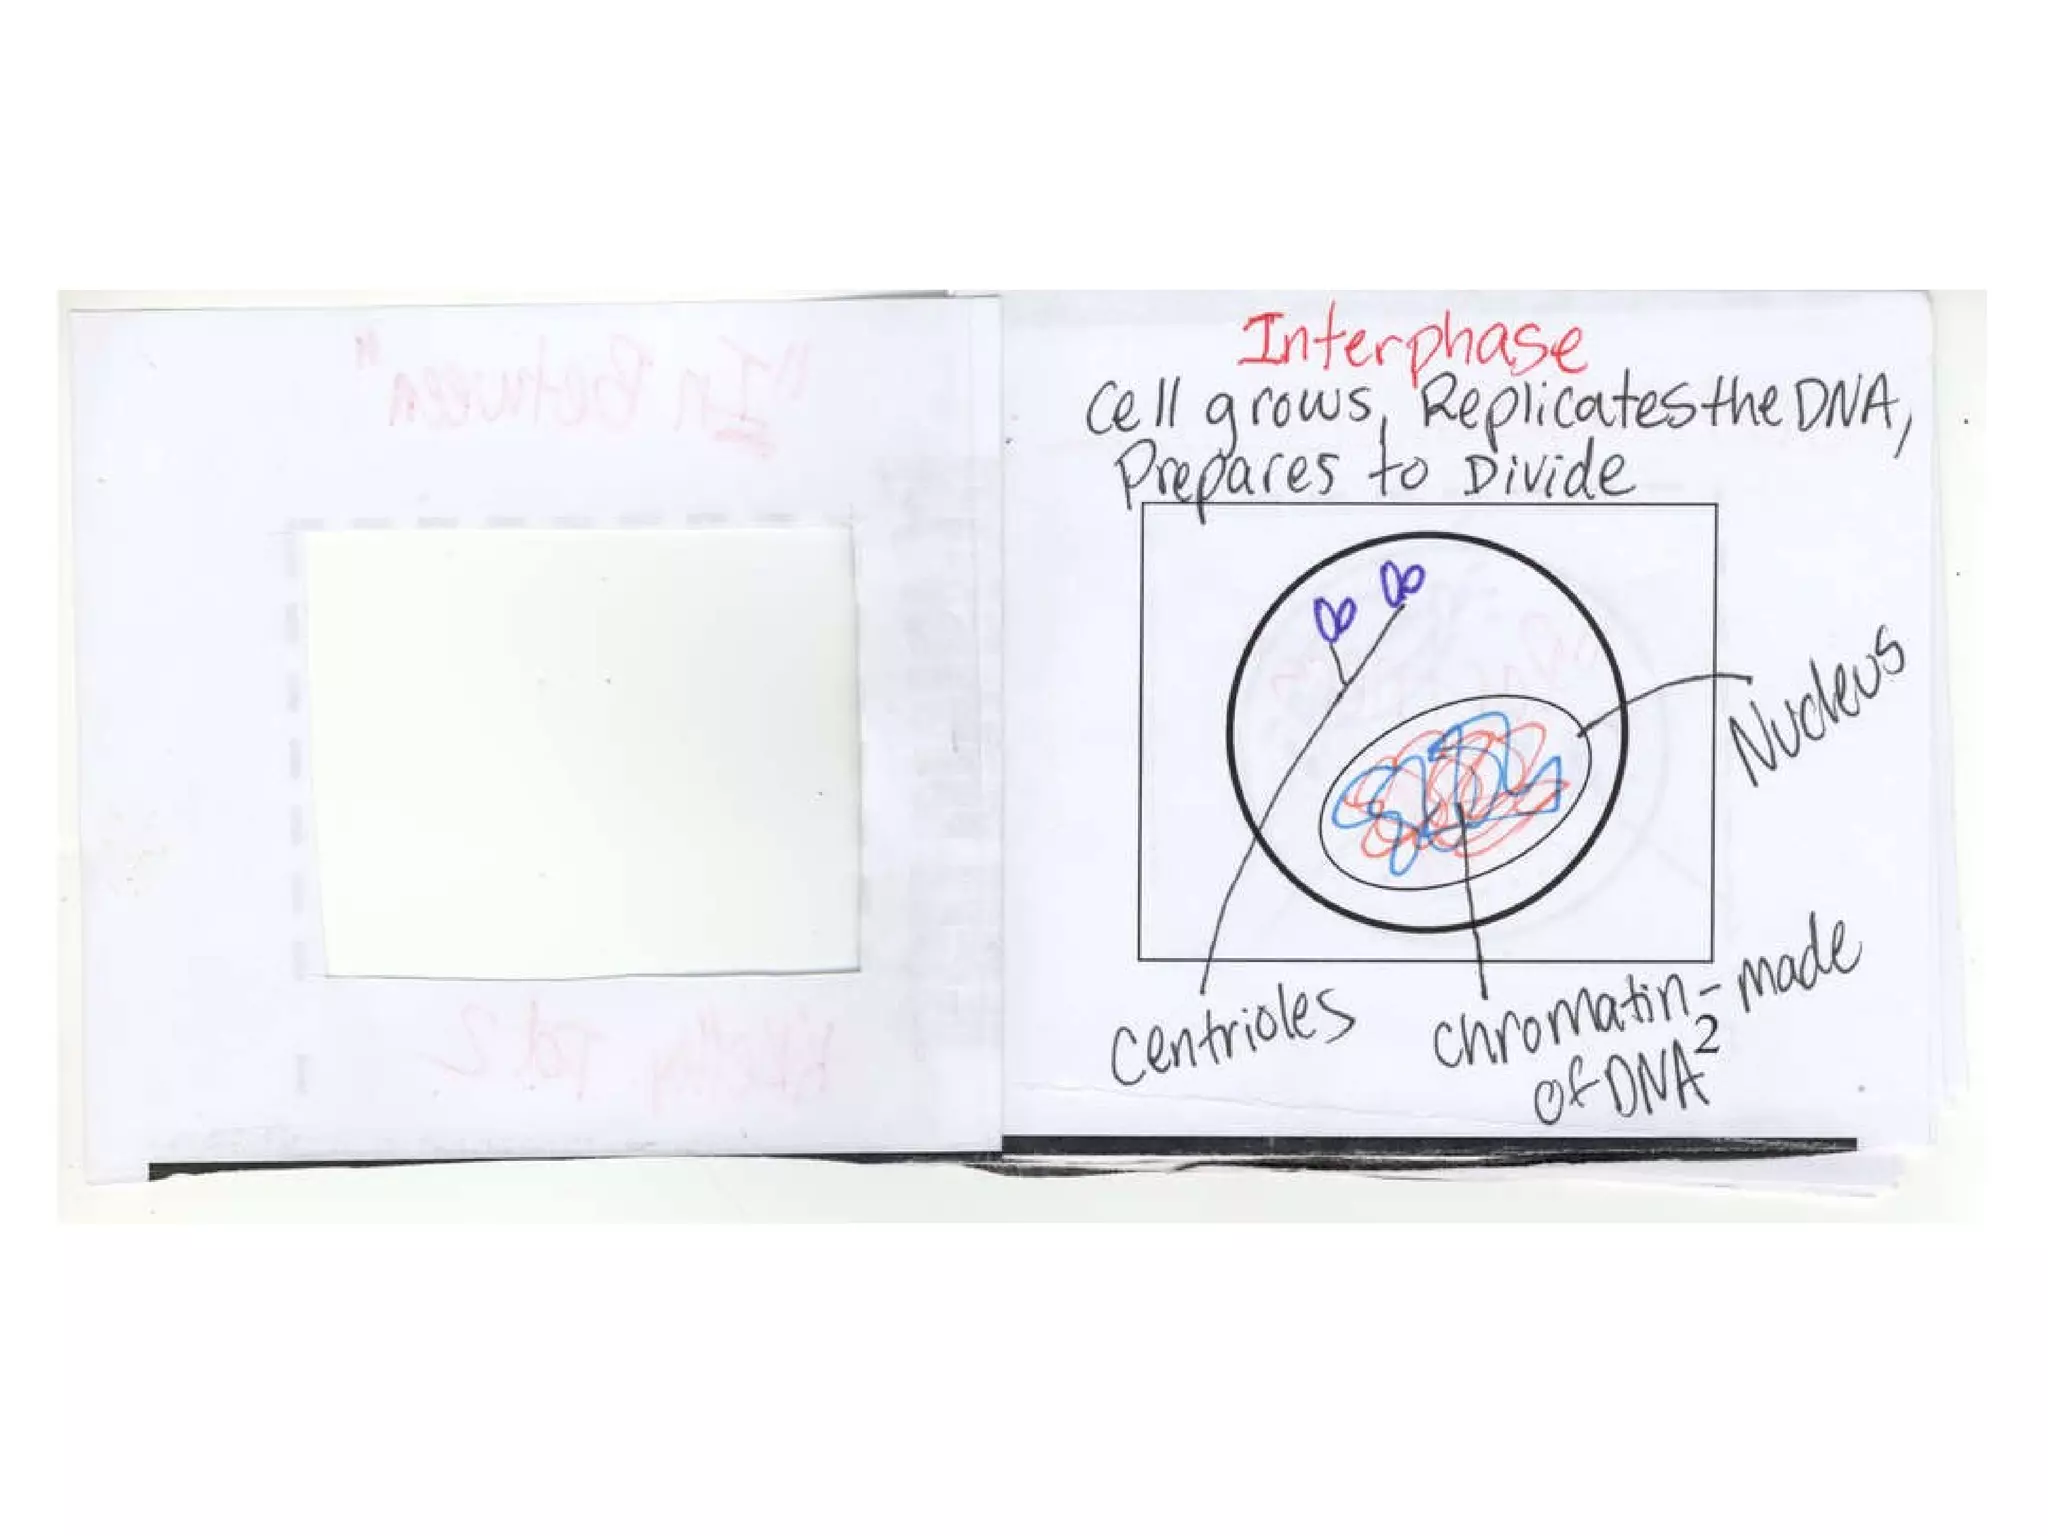 "In Between"
Interphase
Cell grows, Replicates the DNA,
Prepares to Divide
Nucleus
Centrioles
Chromatin-made
of DNA
2